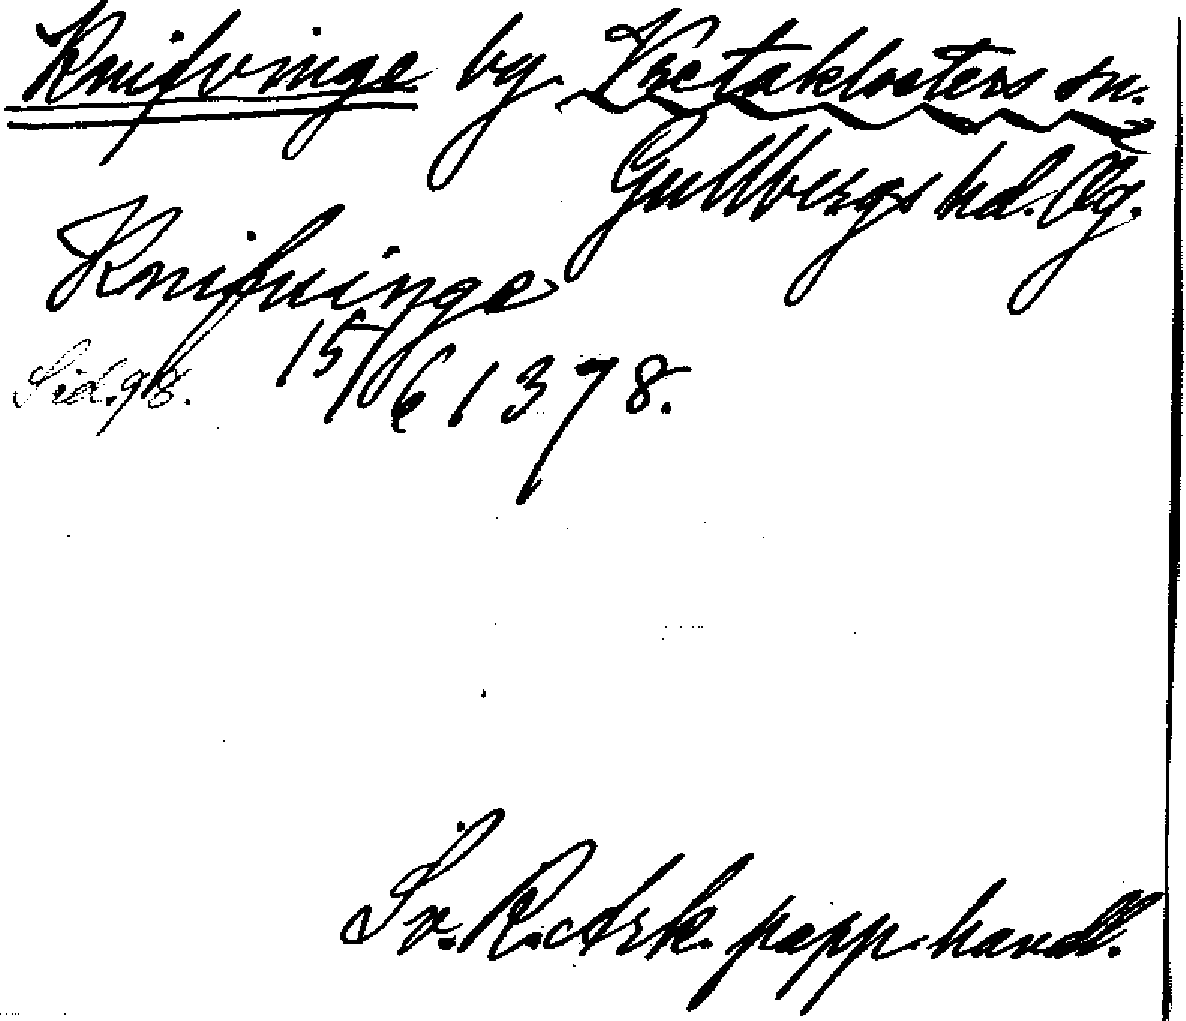 Knifvinge by Vretaklosters sn.
Gullbergs hd. Ög.
Knifuinge
Sid. 98. 15/6 1378.
Sv. R. Ark. papp. handl.